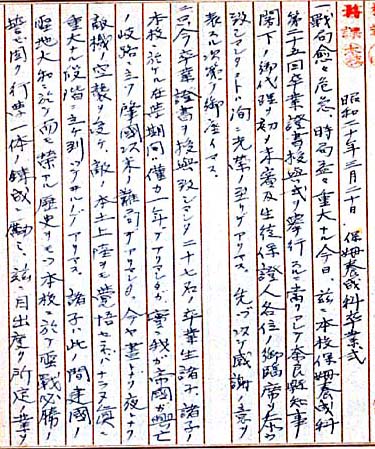 昭和二十年三月二十日 保姆養成科卒業式
一、戦局愈々危急、時局益々重大ナル今日、茲ニ本校保姆養成科
第二十五回卒業證書授與式ヲ挙行スルニ当リマシテ奈良縣知事
閣下ノ御代理ヲ初メ来賓及生徒保證人各位ノ御臨席ヲ
致シマシタコトハ洵ニ光栄ノ至リデアリマス。先ヅ以テ感謝ノ意ヲ
表スル次第デ御座イマス。
只今卒業證書ヲ授與致シマシタ二十七名ノ卒業生諸子、諸子ノ
本校ニ於ケル在学期間ハ僅カ一年デアリマシタガ、實ニ我ガ帝國ガ興亡
ノ岐路ニ立ツ肇國以来ノ難局デアリマシテ、今ヤ晝トナク夜トナク
敵機ノ空襲ヲ受ケ、敵ノ本土上陸ヲモ覚悟セネバナラヌ真ニ
重大ナル段階ニ立チ到ツタノデアリマス。諸子ハ此ノ間建國ノ
聖地大和ニ於テ而モ榮アル歴史ヲモツ本校ニ於テ聖戦必勝ノ
誓ヒ固ク行学一体ノ錬成ニ励ミ、茲ニ目出度ク所定ノ業ヲ